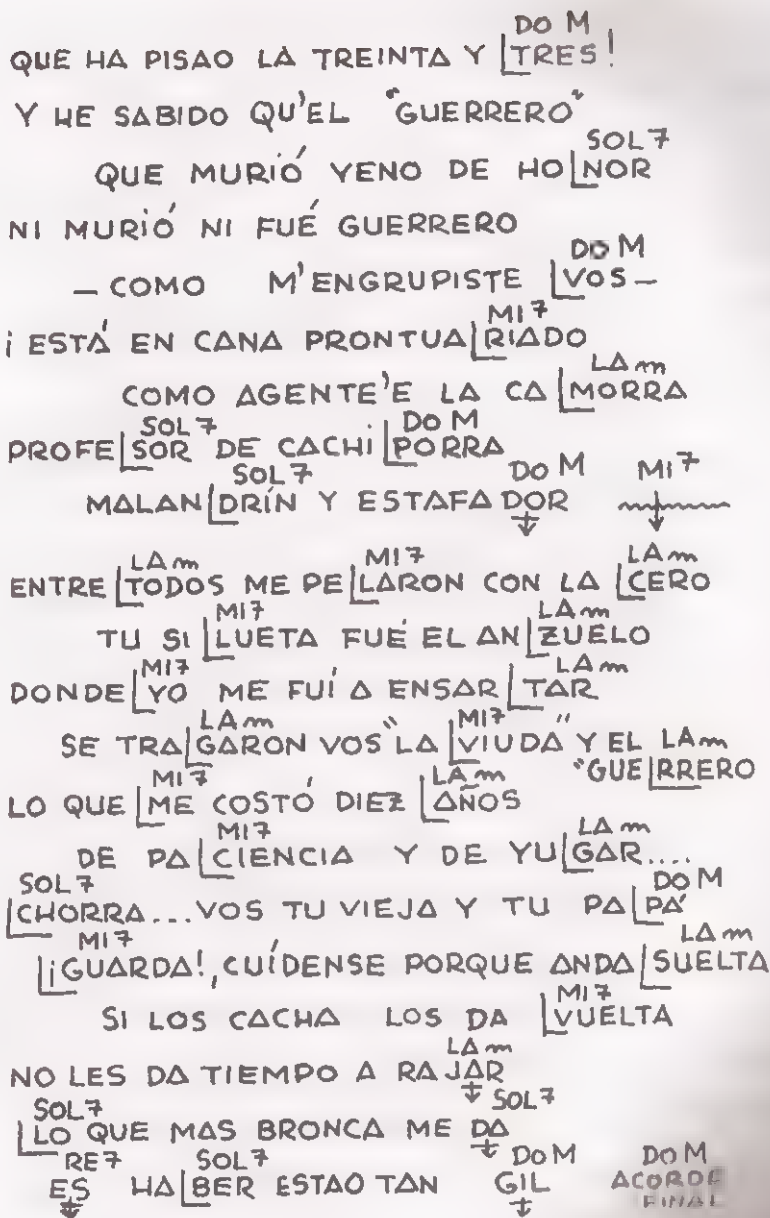 DO M
QUE HA PISAO LA TREINTA Y TRES!
Y HE SABIDO QU'EL "GUERRERO"
SOL7
QUE MURIÓ YENO DE HONOR
NI MURIÓ NI FUÉ GUERRERO
DO M
— COMO M'ENGRUPISTE VOS —
MI7
¡ ESTÁ EN CANA PRONTUARIADO
LAm
COMO AGENTE'E LA CAMORRA
SOL7 DO M
PROFESOR DE CACHIPORRA
SOL7 DO M MI7
MALANDRÍN Y ESTAFADOR
LAm MI7 LAm
ENTRE TODOS ME PELARON CON LA CERO
MI7 LAm
TU SILUETA FUÉ EL ANZUELO
MI7 LAm
DONDE YO ME FUÍ A ENSARTAR
LAm MI7 LAm
SE TRAGARON VOS "LA VIUDA" Y EL
"GUERRERO
MI7 LAm
LO QUE ME COSTÓ DIEZ AÑOS
MI7 LAm
DE PACIENCIA Y DE YUGAR....
SOL7 DO M
CHORRA...VOS TU VIEJA Y TU PAPÁ
MI7 LAm
¡GUARDA!, CUÍDENSE PORQUE ANDA SUELTA
MI7
SI LOS CACHA LOS DA VUELTA
LAm
NO LES DA TIEMPO A RAJAR
SOL7 SOL7
LO QUE MAS BRONCA ME DA
RE7 SOL7 DO M DO M
ES HABER ESTAO TAN GIL ACORDE
FINAL